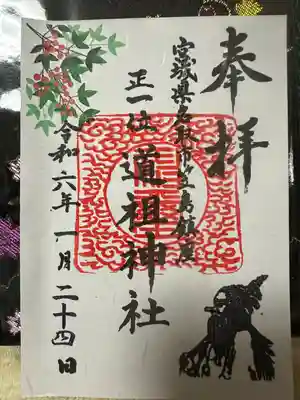 奉拝
宮城県名取市笠島鎮座
正一位
道祖神社
令和六年一月二十四日